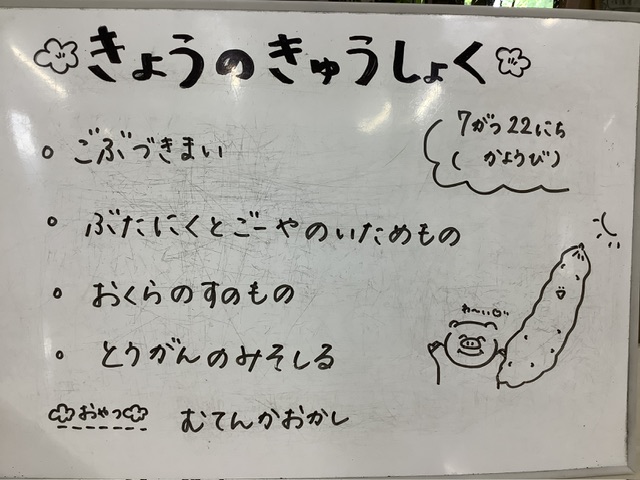 きょうのきゅうしょく
7がつ22にち
(かようび)
ごぶづきまい
ぶたにくとごーやのいためもの
おくらのすのもの
とうがんのみそしる
わ〜い
おやつ むてんかおかし